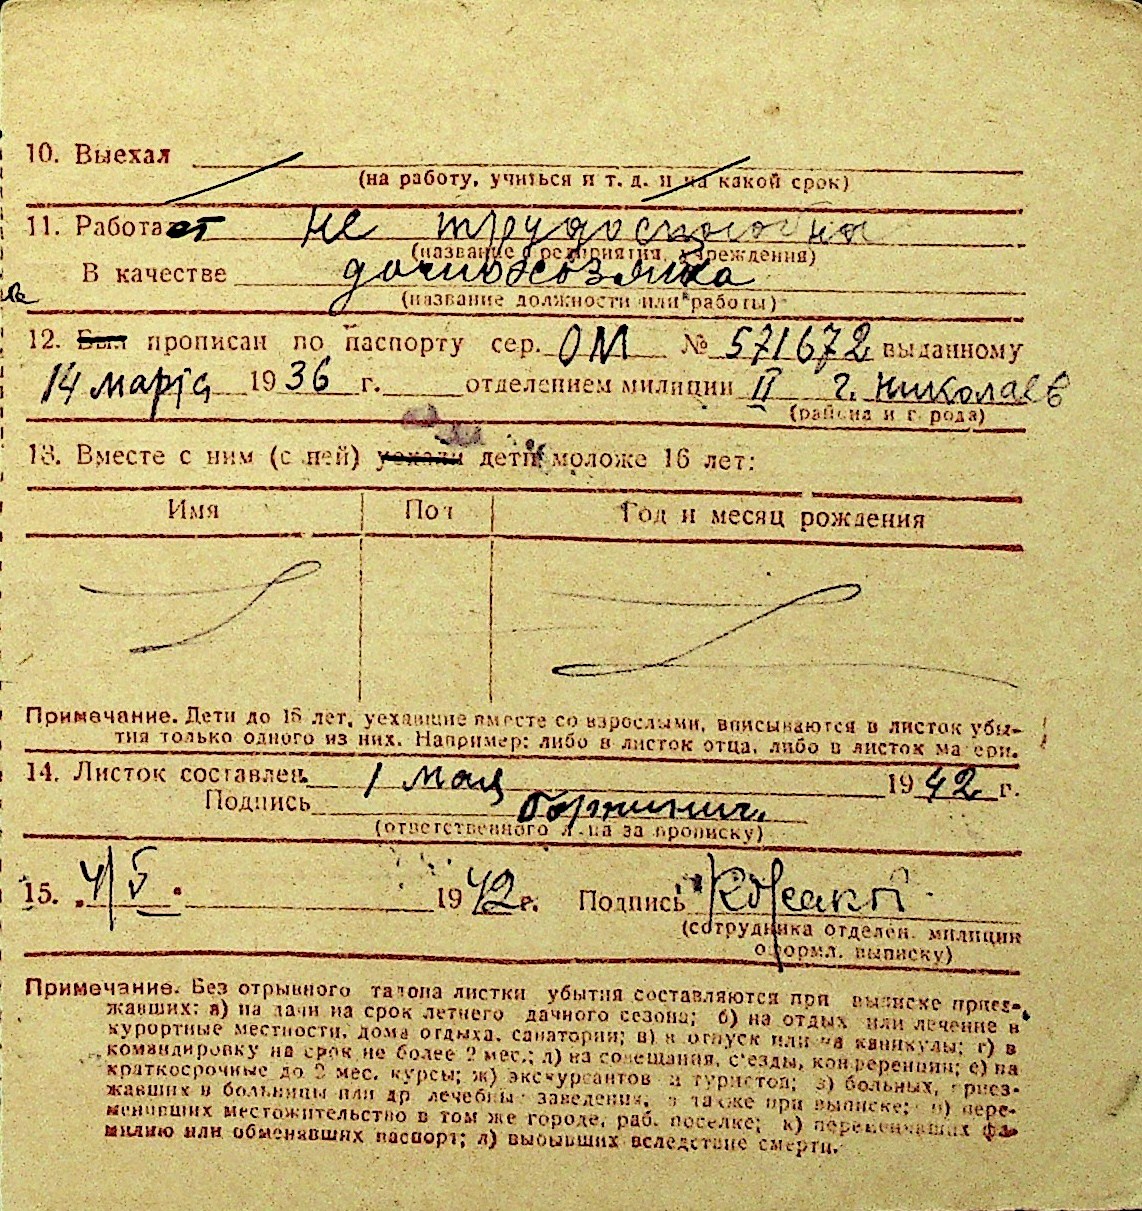 10. Выехал
(на работу, учиться и т. д. и на какой срок)
11. Работает не трудоспособна
(название предприятия, учреждения)
В качестве домохозяйка
(название должности или работы)
12. Был прописан по паспорту сер. ОМ № 571672 выданному
14 марта 1936 г. отделением милиции II г. Николаев
(района и города)
13. Вместе с ним (с ней) уехали дети моложе 16 лет:
Имя Пол Год и месяц рождения
Примечание. Дети до 16 лет, уехавшие вместе со взрослыми, вписываются в листок убы-
тия только одного из них. Например: либо в листок отца, либо в листок матери.
14. Листок составлен 1 мая 1942 г.
Подпись
(ответственного лица за прописку)
15. 4/5 1942 г. Подпись
(сотрудника отделен. милиции
оформл. выписку)
Примечание. Без отрывного талона листки убытия составляются при выписке приез-
жавших: а) на дачи на срок летнего дачного сезона; б) на отдых или лечение в
курортные местности, дома отдыха, санатории; в) в отпуск или на каникулы; г) в
командировку на срок не более 2 мес.; д) на совещания, съезды, конференции; е) на
краткосрочные до 2 мес. курсы; ж) экскурсантов и туристов; з) больных, приез-
жавших в больницы или др. лечебные заведения, а также при выписке; и) пере-
менивших местожительство в том же городе, раб. поселке; к) переменивших фа-
милию или обменявших паспорт; л) выбывших вследствие смерти.